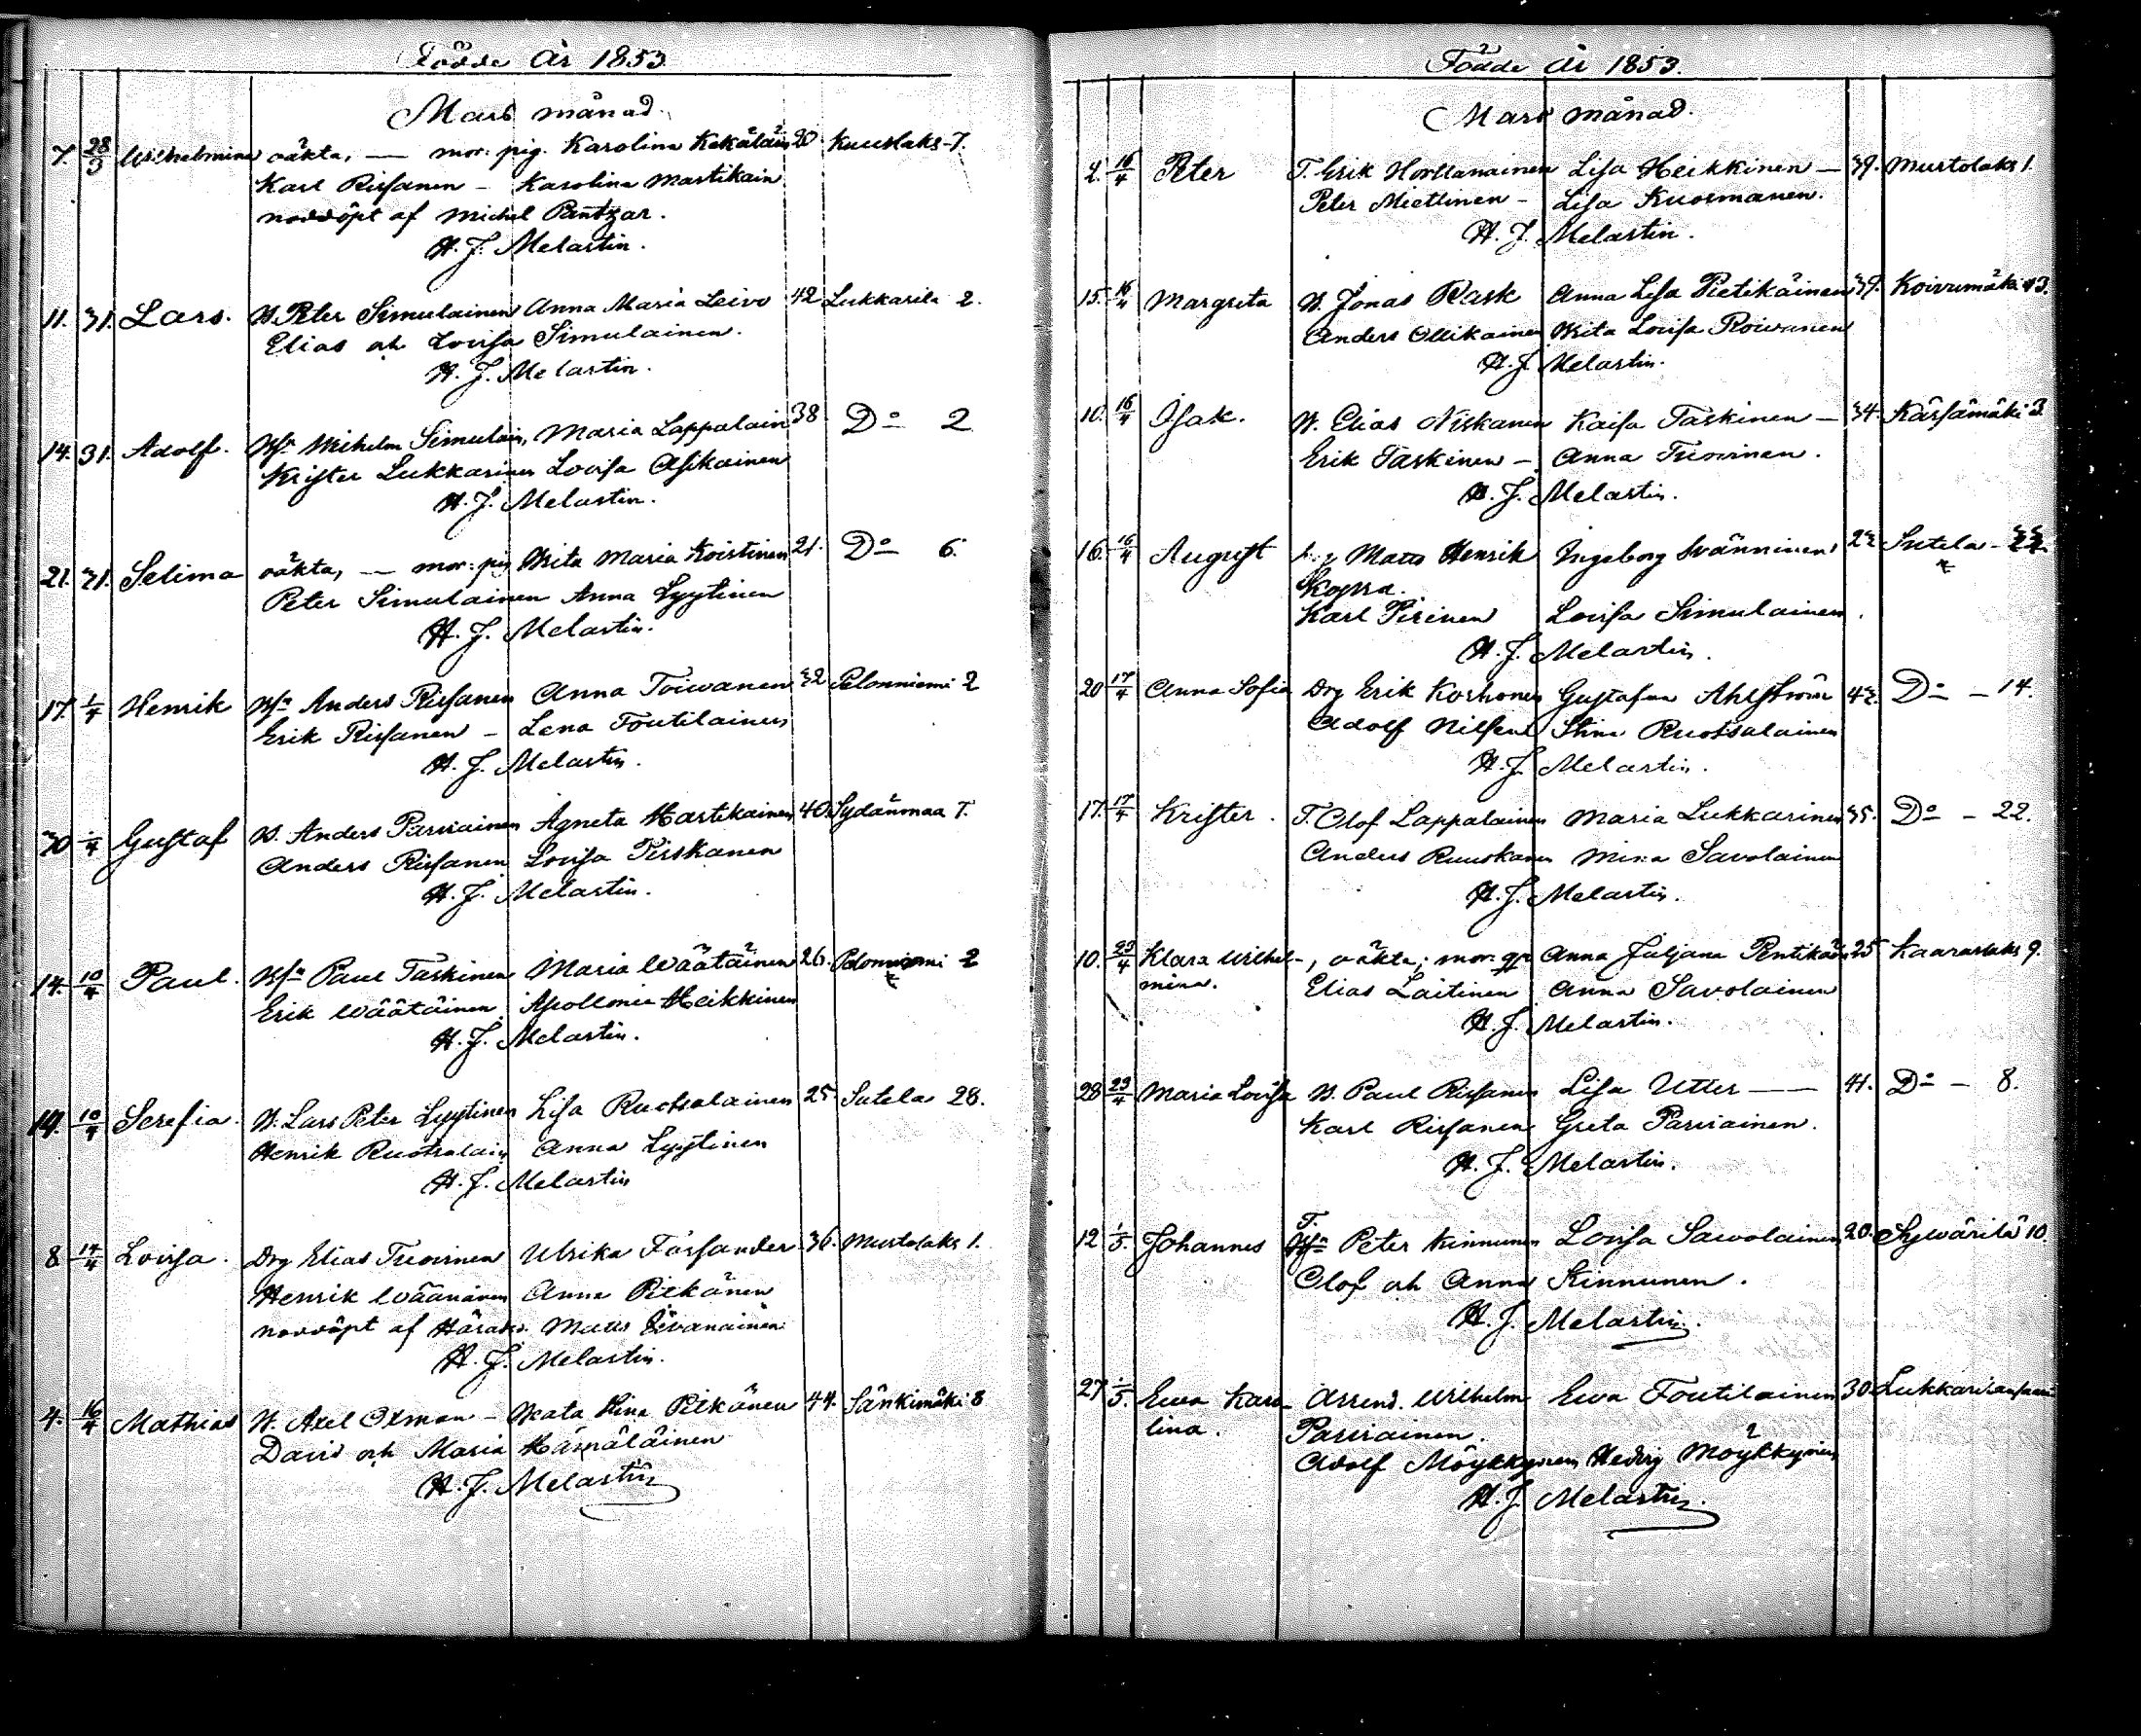 Födde År 1853
Mars månad.
7. 28/3 Wilhelmina oäkta, — mor: pig. Karolina Kekäläin 20 Kuuslaks 7.
Karl Rissanen – Karolina Martikain
nöddöpt af Michel Pentzar.
H. J. Melartin.
11. 31. Lars. B. Peter Simulainen Anna Maria Leivo 42 Lukkarila 2.
Elias och Lovisa Simulainen.
H. J. Melartin.
14. 31. Adolf. Wilhelm Simulain, Maria Lappalain 38 Do 2
Krister Lukkarinen Lovisa Asikainen
H. J. Melartin.
21. 31. Selima oäkta, — mor: pig Brita Maria Koistinen 21. Do 6.
Peter Simulainen Anna Lyytinen
H. J. Melartin.
17. 1/4 Henrik Anders Rissanen Anna Toivanen 32 Pelonniemi 2
Erik Rissanen – Lena Toutilainen
H. J. Melartin.
30 /4 Gustaf B. Anders Parviainen Agneta Hartikainen 40. Sydänmaa 7.
Anders Rissanen Lovisa Pirskanen
H. J. Melartin.
14. 10/4 Paul. Paul Taskinen Maria Wäätäinen 26. Pelonniemi 2
Erik Wäätäinen Apollonia Heikkinen
H. J. Melartin.
19. 10/4 Serefia. B. Lars Peter Lyytinen Lisa Ruotsalainen 25 Sutela 28.
Henrik Ruotsalain Anna Lyytinen
H. J. Melartin
8 14/4 Lovisa. Drg Elias Tuovinen Ulrika Forsander 36. Murtolaks 1.
Henrik Wäänänen Anna Pitkänen
nöddöpt af Härads. Matts
H. J. Melartin.
4. 16/4 Mathias B. Axel Oxman – Beata Stina Pitkänen 44. Sänkimäki 8
David och Maria Hämäläinen
H. J. Melartin
Födde År 1853.
Mars månad.
2. 16/4 Peter T. Erik Horttanainen Lisa Heikkinen — 39. Murtolaks 1.
Peter Miettinen – Lisa Kuosmanen.
H. J. Melartin.
15. 16/4 Margreta B. Jonas Rask Anna Lisa Pietikäinen 39. Koivumäki 13.
Anders Ollikainen Brita Lovisa Roivanen
H. J. Melartin.
10. 16/4 Isak. B. Elias Niskanen Kaisa Taskinen — 34. Kärsämäki 3
Erik Taskinen – Anna Tuovinen.
H. J. Melartin.
16. 16/4 August Matts Henrik Ingeborg Svänninen 22 Sutela
Koppra.
Karl Pirinen Lovisa Simulainen.
H. J. Melartin.
20 17/4 Anna Sofia Drg Erik Korhonen Gustafva Ahlström 42. Do – 14.
Adolf Nilsen Stina Ruotsalainen
H. J. Melartin.
17. 17/4 Krister. T. Olof Lappalainen Maria Lukkarinen 35. Do – 22.
Anders Ruuskanen Mina Savolainen
H. J. Melartin.
10. 23/4 Klara Wilhel- oäkta; mor: Anna Juljana Pentikäi 25 Kaaraslaks 9.
mina. Elias Laitinen Anna Savolainen
H. J. Melartin.
28 23/4 Maria Lovisa B. Paul Rissanen Lisa Utter — 41. Do – 8.
Karl Rissanen Greta Parviainen.
H. J. Melartin.
12 1/5. Johannes T. Peter Kinnunen Lovisa Sawolainen 20. Sywärilä 10.
Olof och Anna Kinnunen.
H. J. Melartin.
27 1/5. Ewa Karo- Arrend. Wilhelm Ewa Toutilainen 30.
lina. Parviainen.
Adolf Möykkynen Hedvig Möykkynen
H. J. Melartin.